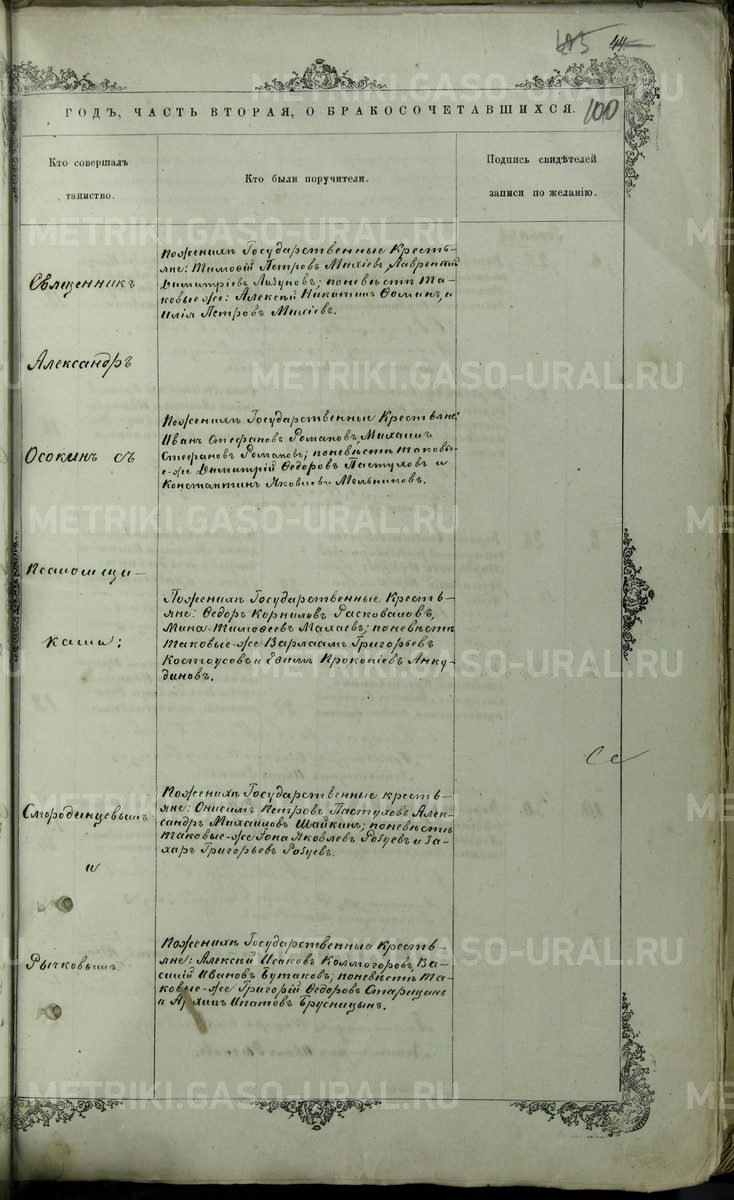 485 44
100
ГОДЪ, ЧАСТЬ ВТОРАЯ, О БРАКОСОЧЕТАВШИХСЯ.
Кто совершалъ
таинство.
Кто были поручители.
Подпись свидѣтелей
записи по желанію.
Священникъ
Александръ
Осокинъ съ
Псаломщи-
ками:
Смородинцевымъ
и
Рычковымъ.
По женихѣ Государственные Кресть-
яне: Тимофій Петровъ Михіевъ, Лаврентій
Димитріевъ Лизуновъ; по невѣстѣ та-
ковые-же: Алексѣй Никитинъ Фоминъ, и
Илія Петровъ Михіевъ.
По женихѣ Государственные Крестьяне:
Иванъ Стефановъ Ромаповъ, Михаилъ
Стефановъ Ромаповъ; по невѣстѣ таковы-
е-же Димитрій Ѳедоровъ Пастуховъ и
Константинъ Яковлевъ Мельниковъ.
По женихѣ Государственные Кресть-
яне: Ѳедоръ Корниловъ Расковаловъ,
Мина Тимофеевъ Махаевъ; по невѣстѣ
таковые-же Варлаамъ Григорьевъ
Костоусовъ и Ефимъ Прокопіевъ Анку-
диновъ.
По женихѣ Государственные кресть-
яне: Онисимъ Петровъ Пастуховъ, Алек-
сандръ Михаиловъ Шайкинъ; по невѣстѣ
таковые-же Іона Яковлевъ Рогуевъ и За-
харъ Григорьевъ Рогуевъ.
По женихѣ Государственные Кресть-
яне: Алексій Исаковъ Колмогоровъ, Ва-
силій Ивановъ Бутаковъ; по невѣстѣ та-
ковые-же Григорій Ѳедоровъ Старицынъ
и Архипъ Ипатовъ Брусницынъ.
METRIKI.GASO-URAL.RU